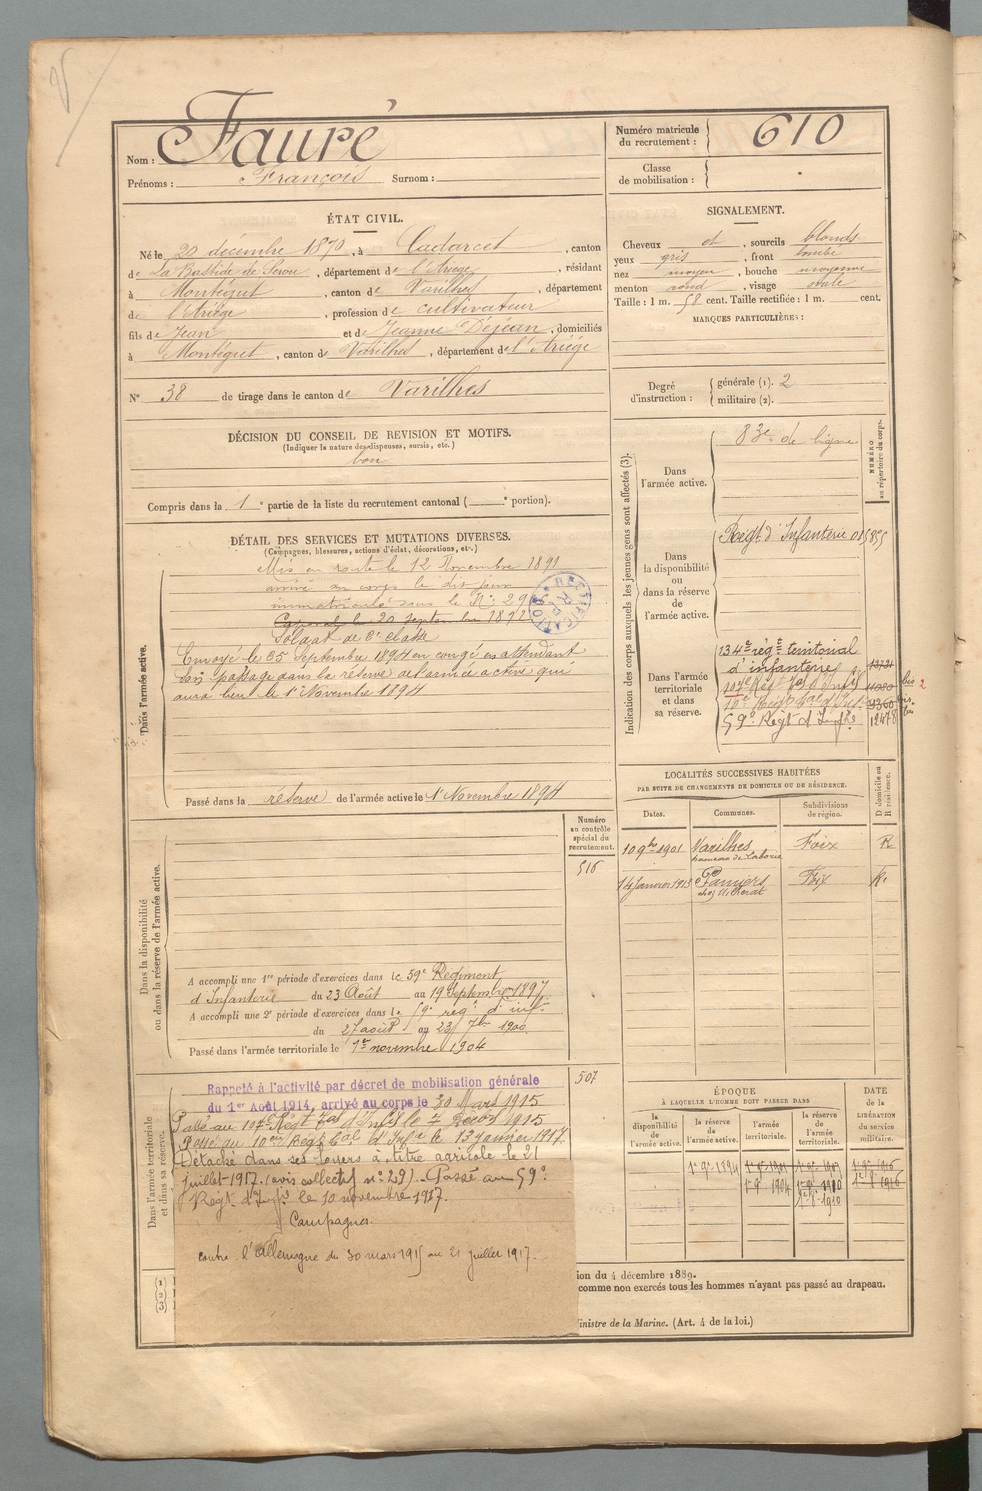 Nom : Fauré
Prénoms : François Surnom :
Numéro matricule
du recrutement : 610
Classe
de mobilisation :
ÉTAT CIVIL.
Né le 20 décembre 1870, à Cadarcet, canton
de La Bastide de Serou, département de l'Ariège, résidant
à Montégut, canton de Varilhes, département
de l'Ariège, profession de cultivateur
fils de Jean et de Jeanne Déjean, domiciliés
à Montégut, canton de Varilhes, département de l'Ariége
N° 38 de tirage dans le canton de Varilhes
DÉCISION DU CONSEIL DE REVISION ET MOTIFS.
(Indiquer la nature des dispenses, sursis, etc.)
bon
Compris dans la 1e partie de la liste du recrutement cantonal ( e portion).
DÉTAIL DES SERVICES ET MUTATIONS DIVERSES.
(Campagnes, blessures, actions d'éclat, décorations, etc.)
Dans l'armée active.
Mis en route le 12 Novembre 1891
arrivé au corps le dit jour
immatriculé sous le N° 29
Caporal le 20 septembre 1892
RECTIFICATION
Soldat de 2e classe
Envoyé le 25 Septembre 1894 en congé en attendant
son passage dans la réserve de l'armée active qui
aura lieu le 1er Novembre 1894
Passé dans la réserve de l'armée active le 1er Novembre 1894
Dans la disponibilité
ou dans la réserve de l'armée active.
Numéro
au contrôle
spécial du
recrutement.
516
A accompli une 1re période d'exercices dans le 59e Régiment
d'Infanterie du 23 Août au 19 Septembre 1897
A accompli une 2e période d'exercices dans le 59e régt d'infie
du 27 août au 23 7bre 1900
Passé dans l'armée territoriale le 1er novembre 1904
Dans l'armée territoriale
et dans sa réserve.
507
Rappelé à l'activité par décret de mobilisation générale
du 1er Août 1914, arrivé au corps le 30 Mars 1915
Passé au 107e Régt Tal d'Infie le 7 1915
Passé au 10e Régt Tal d'Infie le 13 janvier 1917.
Détaché dans ses foyers à titre agricole le 21
juillet 1917. (avis collectif n° 239). Passé au 59e
Régt d'Infie le 10 novembre 1917.
Campagnes.
contre l'Allemagne du 30 mars 1915 au 21 juillet 1917.
(1)
(2)
(3)
SIGNALEMENT.
Cheveux et, sourcils blonds
yeux gris, front bombé
nez moyen, bouche moyenne
menton rond, visage ovale
Taille : 1 m. 58 cent. Taille rectifiée : 1 m. cent.
MARQUES PARTICULIÈRES :
Degré
d'instruction :
générale (1). 2
militaire (2).
Indication des corps auxquels les jeunes gens sont affectés (3).
NUMÉRO
au répertoire du corps.
Dans
l'armée active.
83e de ligne
Dans
la disponibilité
ou
dans la réserve
de
l'armée active.
Régt d'Infanterie 015855
Dans l'armée
territoriale
et dans
sa réserve.
134e régt territorial
d'infanterie
107e Régt Tal d'Infie bis 2
10e Régt Tal d'Infie
59e Régt d'Infie 12478
LOCALITÉS SUCCESSIVES HABITÉES
PAR SUITE DE CHANGEMENTS DE DOMICILE OU DE RÉSIDENCE.
D domicile ou
R résidence.
Dates. Communes. Subdivisions
de région.
10 9bre 1901 Varilhes Foix R
hameau de Laborie
14 Janvier 1913 Pamiers Foix R.
ÉPOQUE
À LAQUELLE L'HOMME DOIT PASSER DANS
DATE
de la
LIBÉRATION
du service
militaire.
la
disponibilité
de
l'armée active.
la réserve
de
l'armée active.
l'armée
territoriale.
la réserve
de
l'armée
territoriale.
1er 9bre 1894 1er 9bre 1904
ion du 4 décembre 1889.
comme non exercés tous les hommes n'ayant pas passé au drapeau.
inistre de la Marine. (Art. 4 de la loi.)